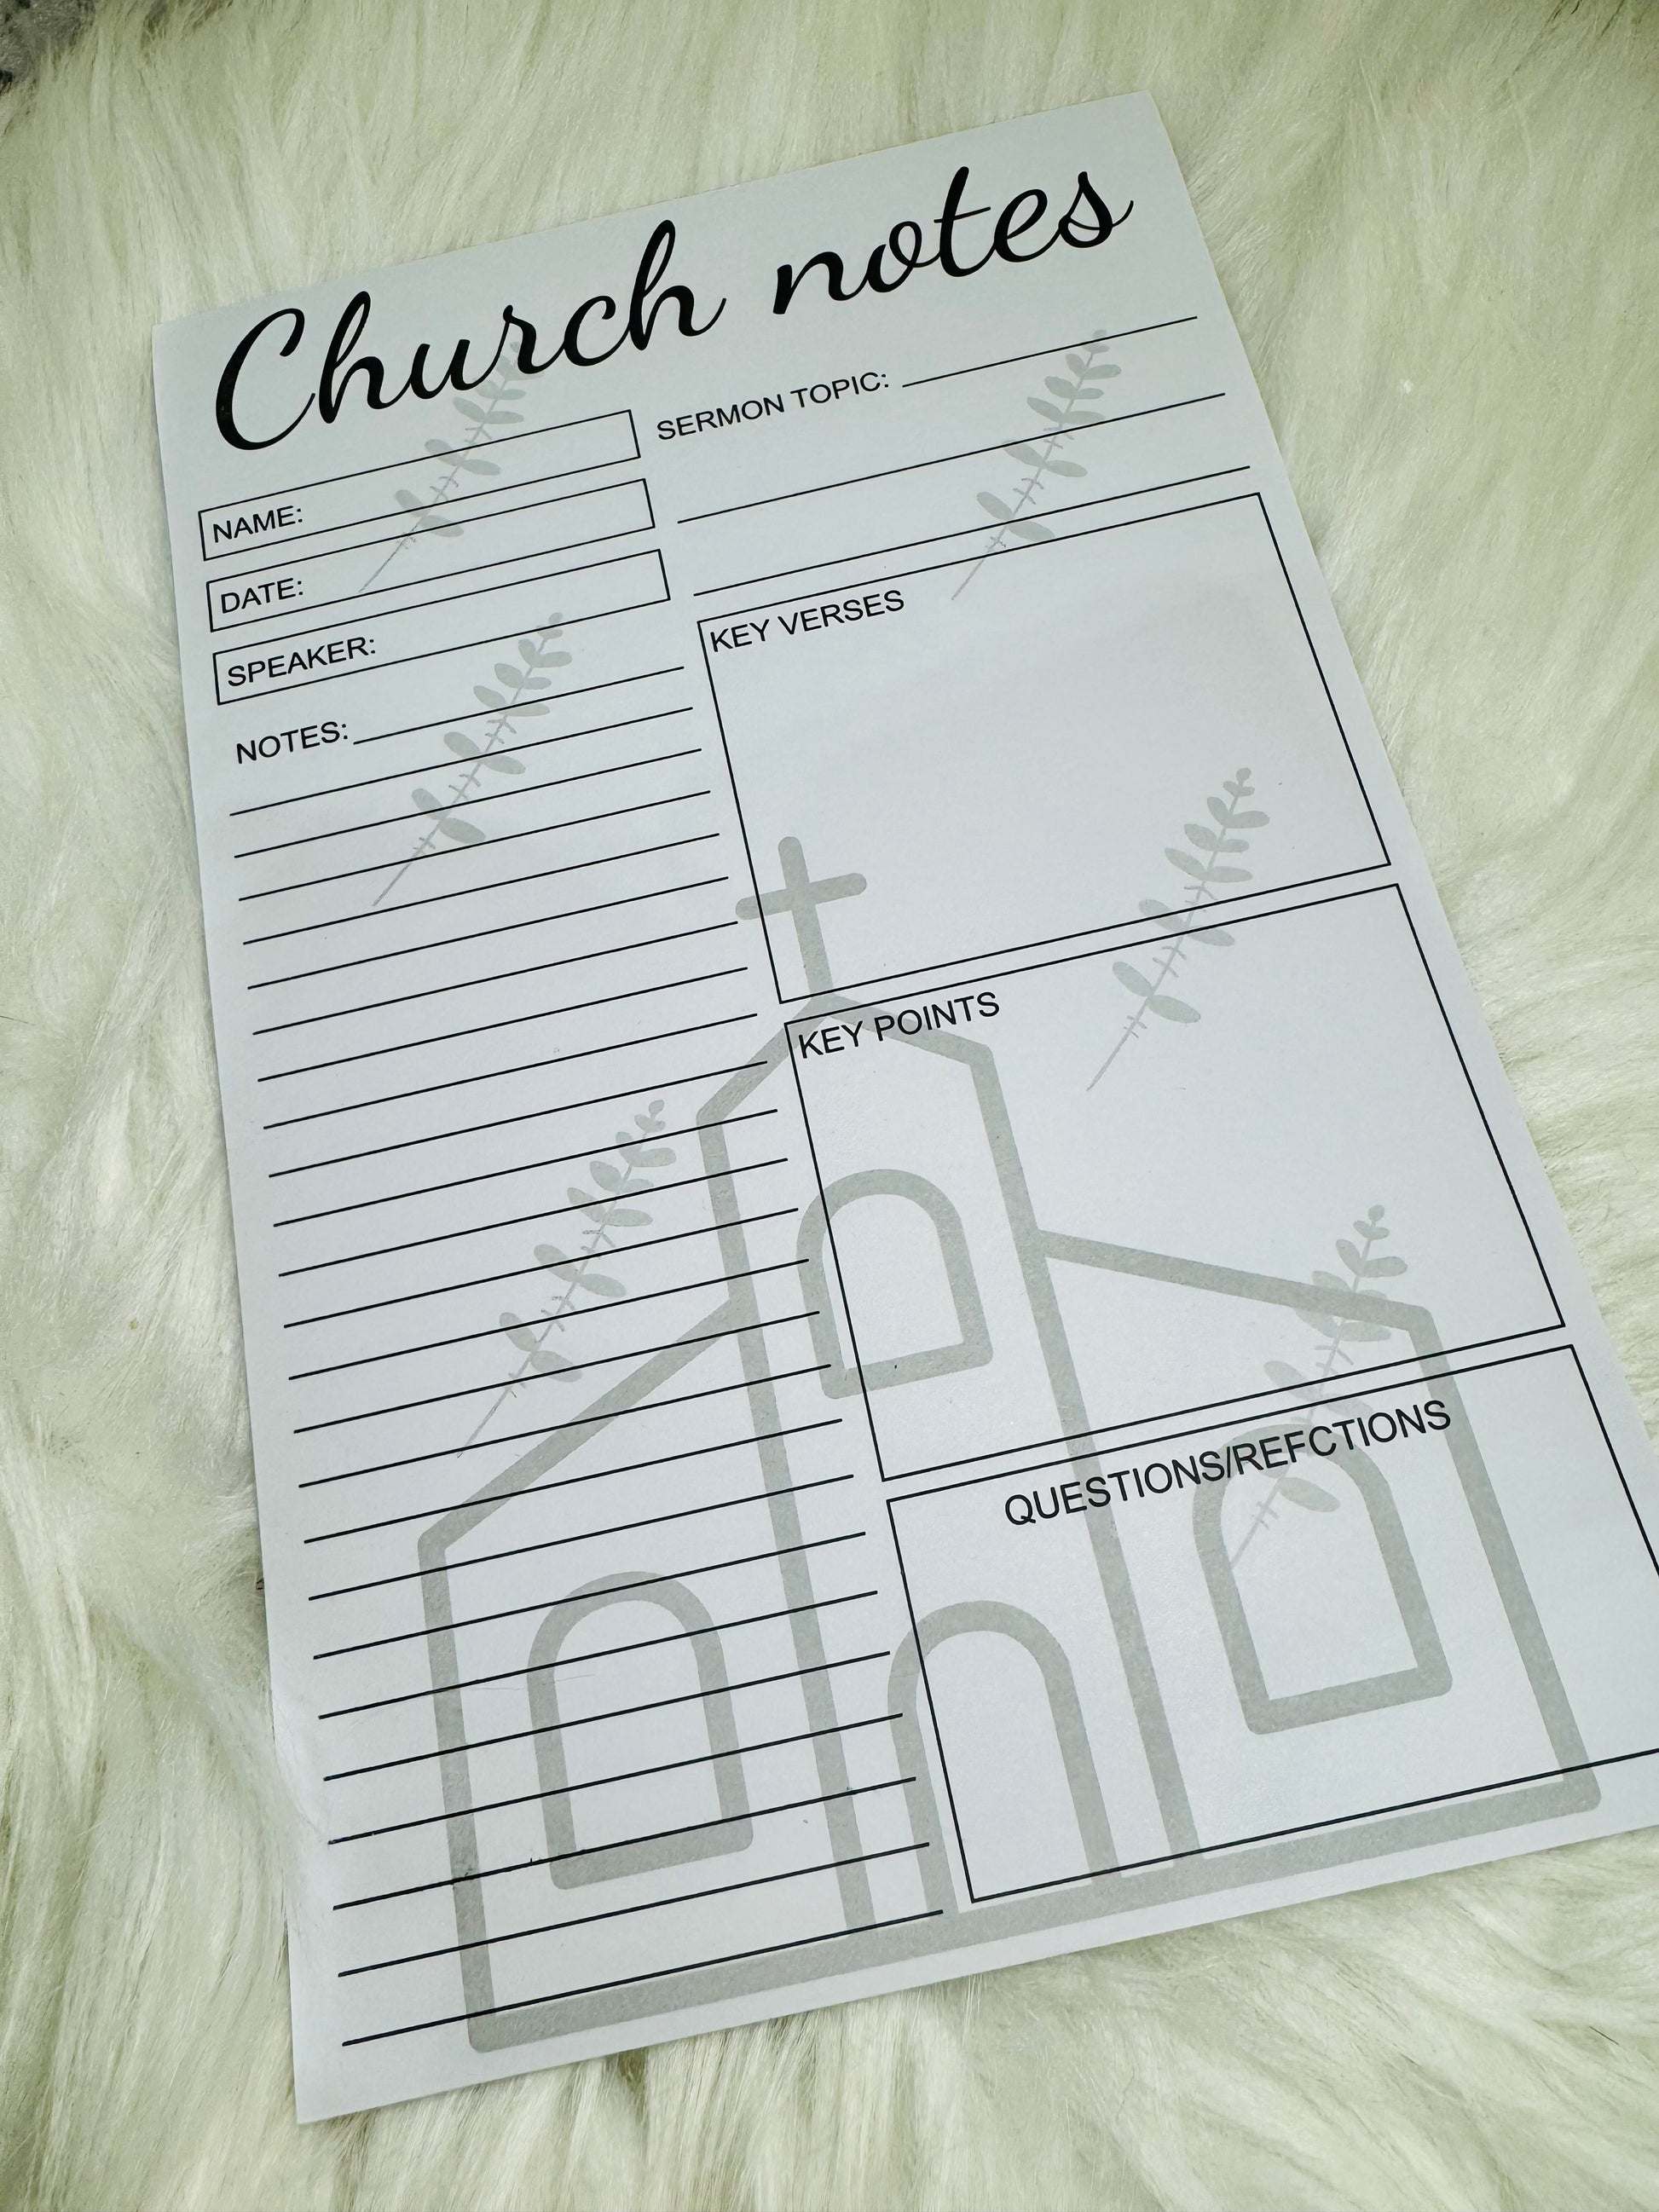 Church notes
NAME:
DATE:
SPEAKER:
NOTES:
SERMON TOPIC:
KEY VERSES
KEY POINTS
QUESTIONS/REFCTIONS